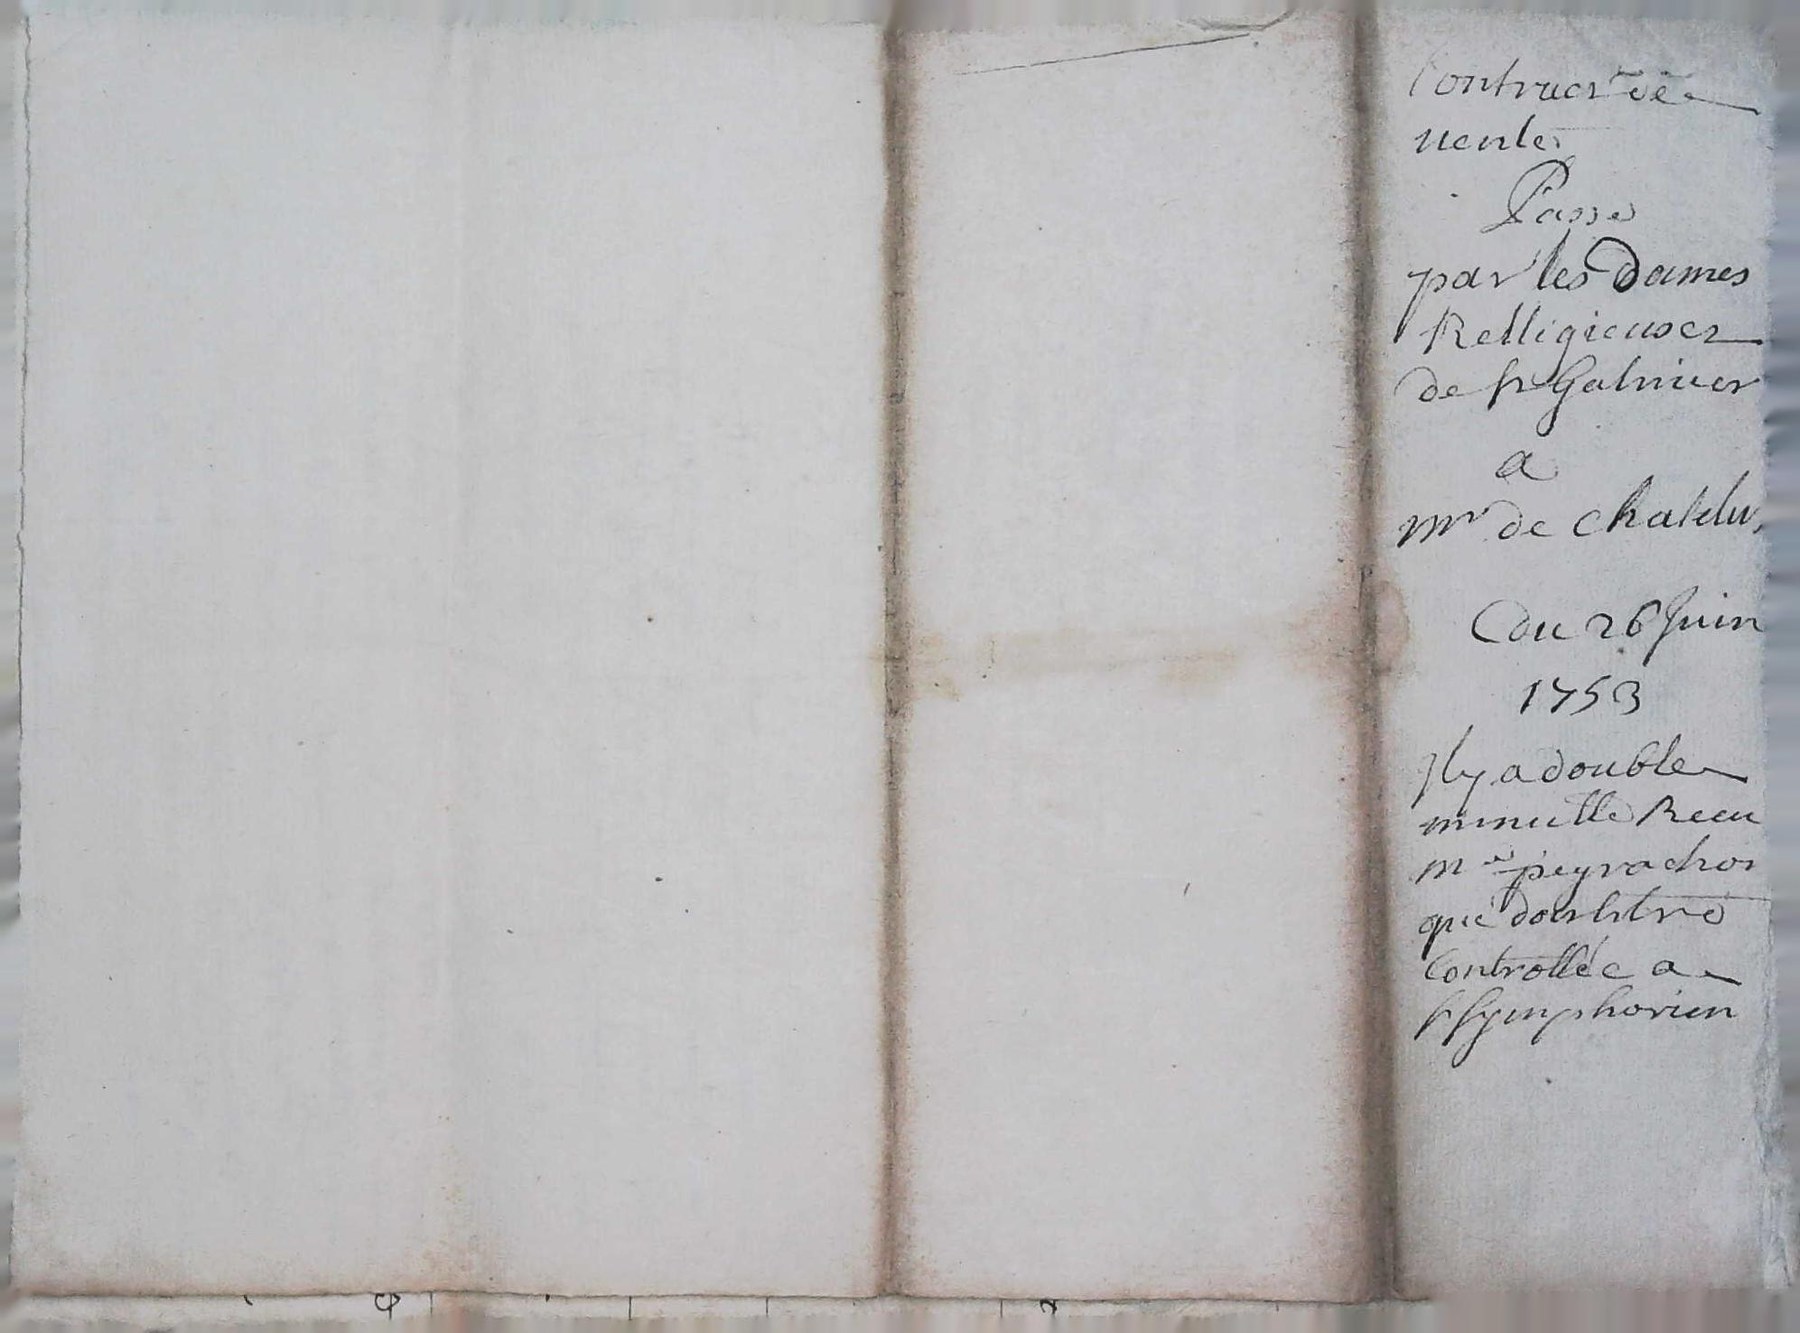 Contract de
vente
Passe
par les Dames
Relligieuses
de st Galmier
a
mr de chatelu,
du 26 Juin
1753
Il y a double
minutte Recu
me peyrachon
que
Controllée a
st symphorien